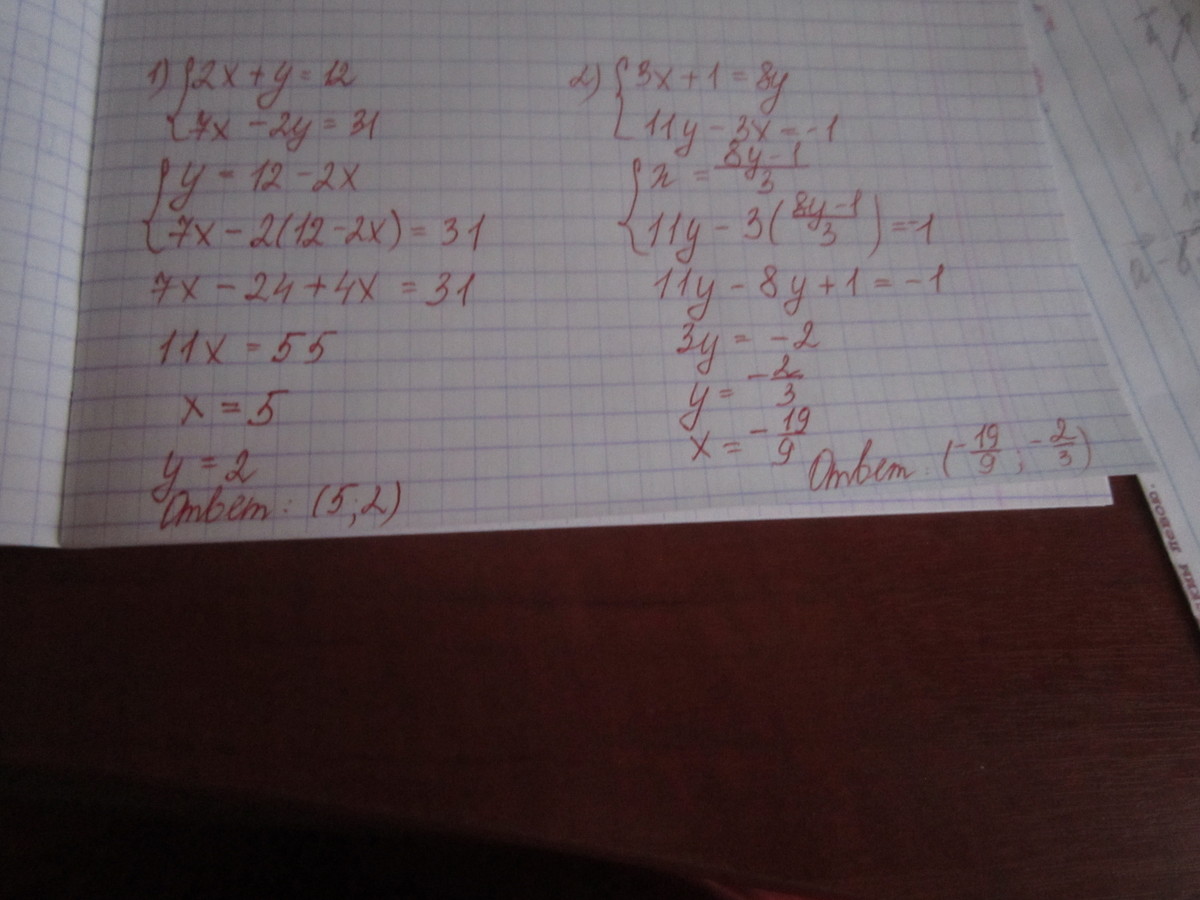 1) {2x + y = 12
{7x - 2y = 31
{y = 12 - 2x
{7x - 2(12 - 2x) = 31
7x - 24 + 4x = 31
11x = 55
x = 5
y = 2
Ответ: (5; 2)
2) {3x + 1 = 8y
{11y - 3x = -1
{x = \frac{8y - 1}{3}
{11y - 3(\frac{8y - 1}{3}) = -1
11y - 8y + 1 = -1
3y = -2
y = -\frac{2}{3}
x = -\frac{19}{9}
Ответ: (-\frac{19}{9}; -\frac{2}{3})